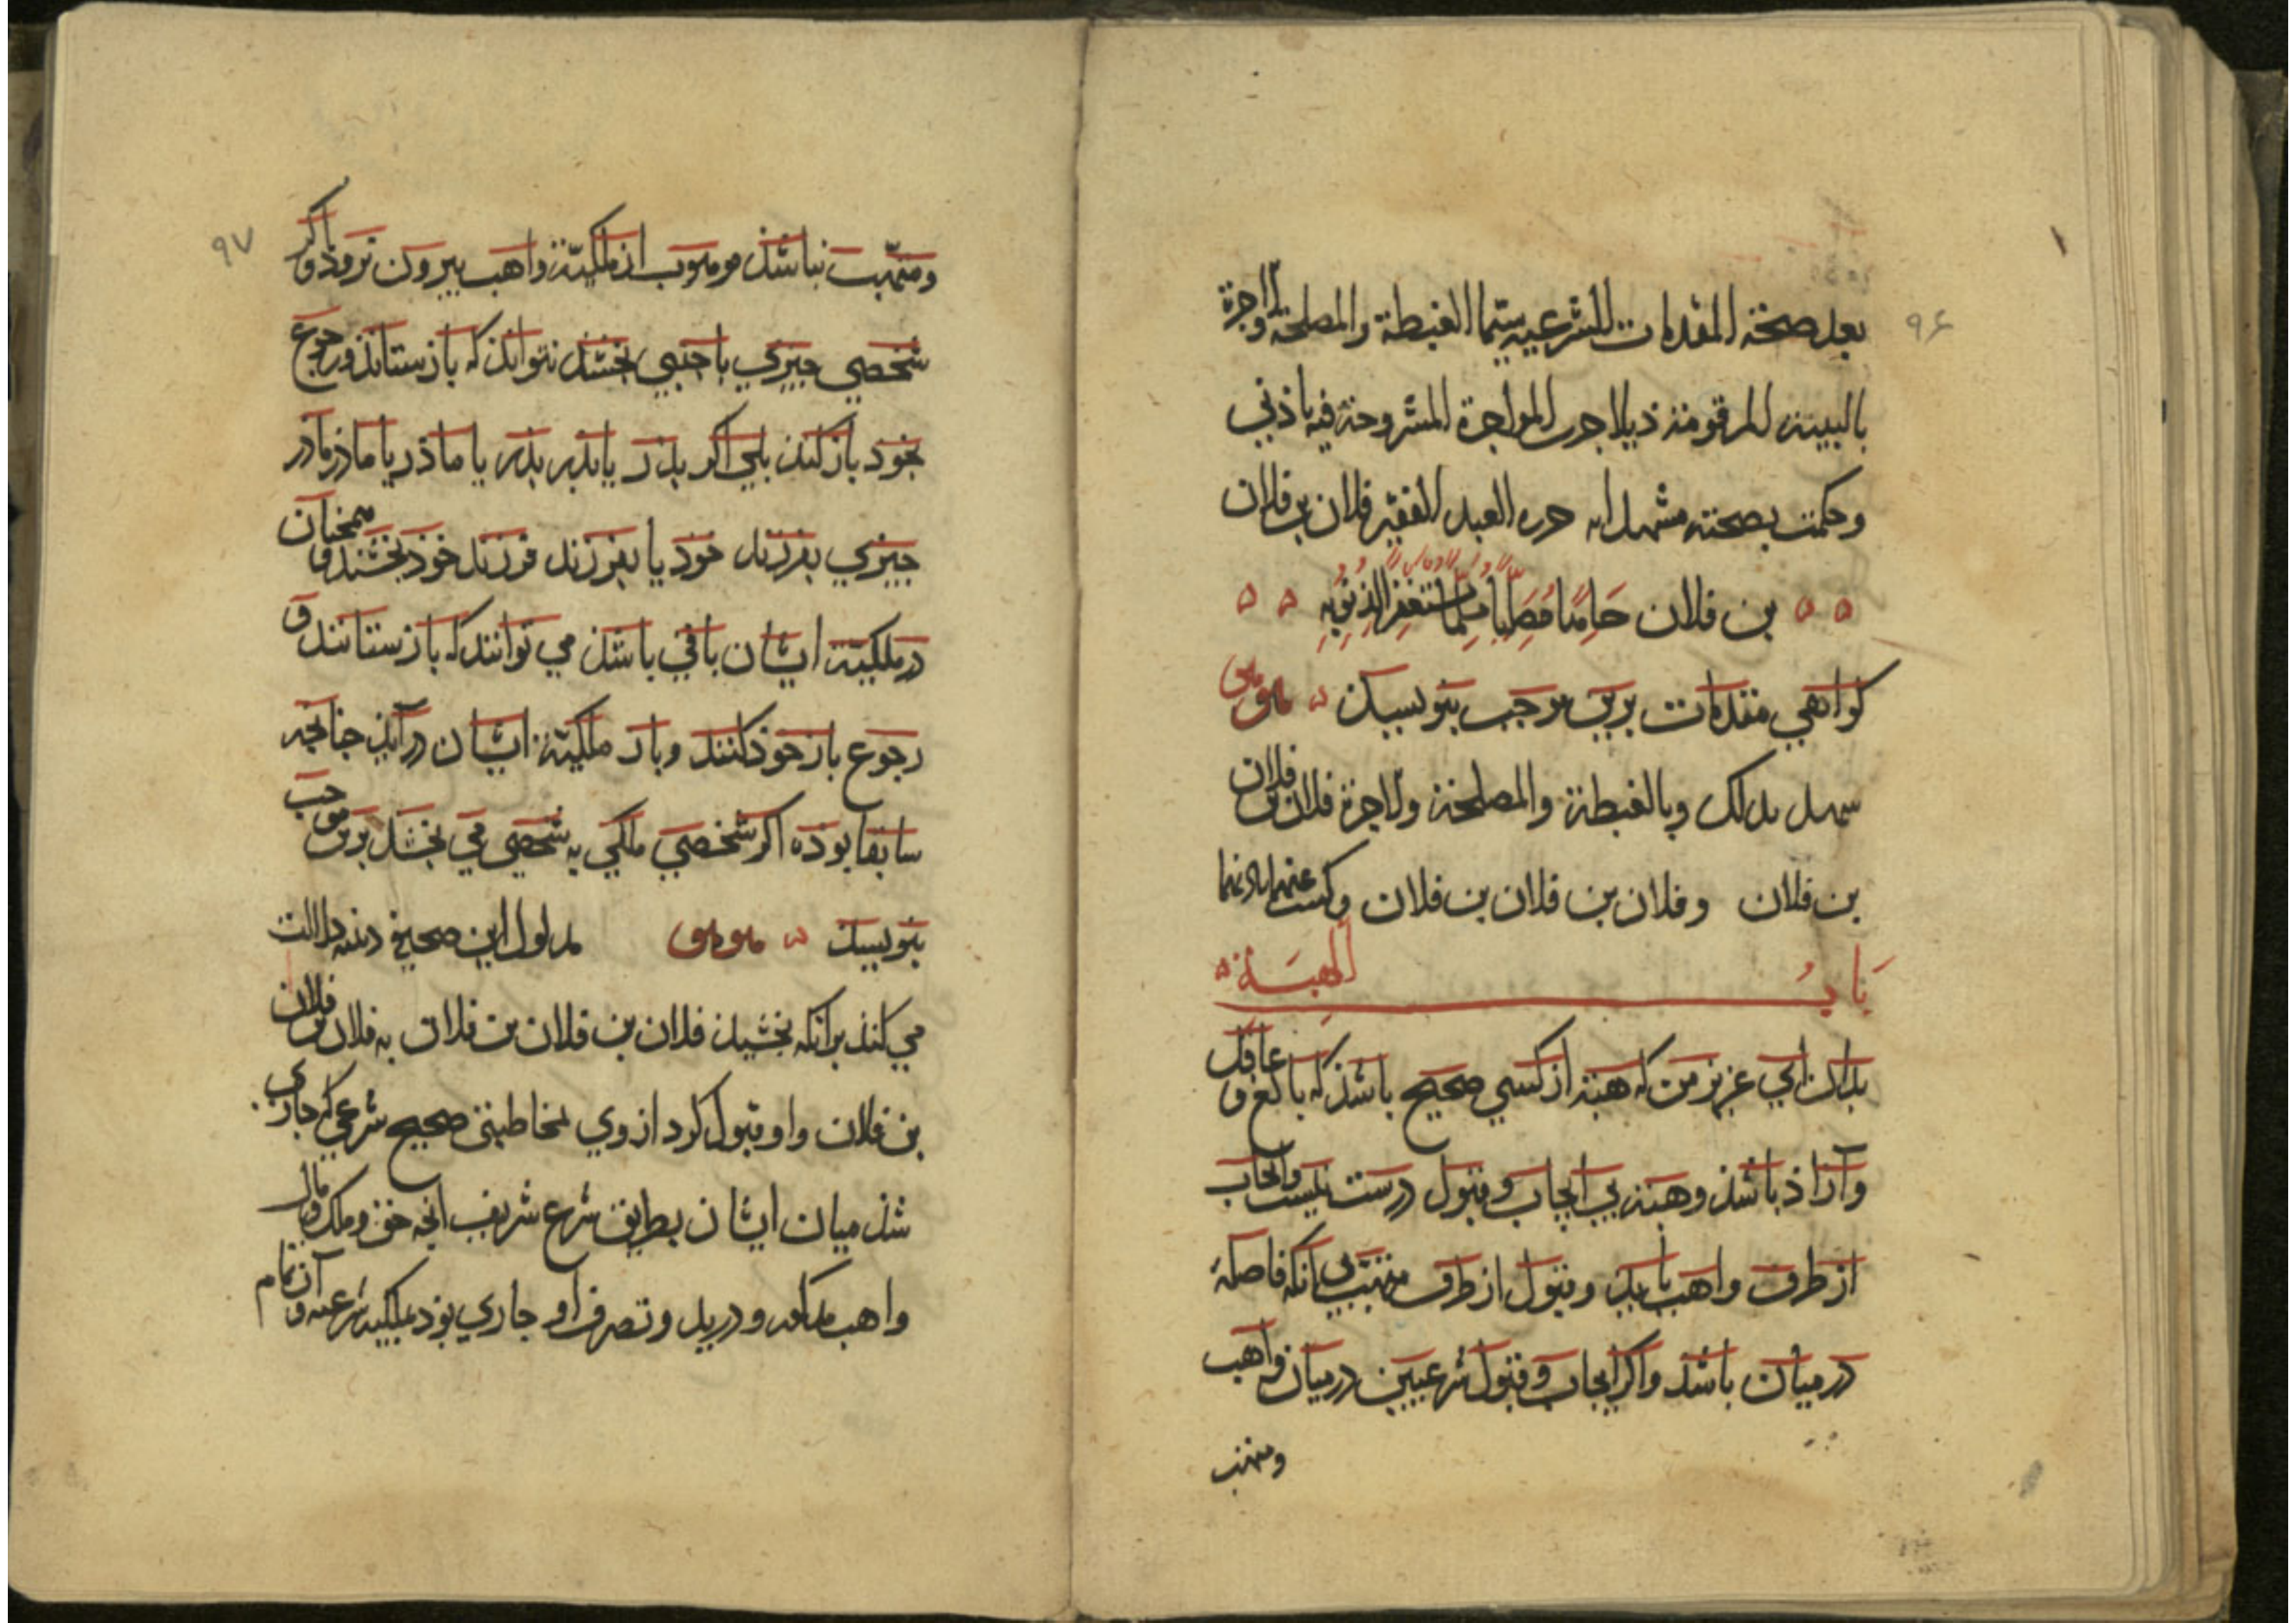 ۹۶
بعد صحة المقدمات الشرعیه سیما الغبطة والمصلحة واجرة
بالبینه المرقومة ذیلا جرت المواجرة المشروحة فیه باذنی
وحکمت بصحته مشهدا به حرره العبد الفقیر فلان بن فلان
بن فلان حامدا مصلیا مسلما مستغفرا لذنوبه
کواهی مقدمات برین موجب بنویسد
شهد بذلک وبالغبطة والمصلحة ولاجرة فلان بن فلان
بن فلان وفلان بن فلان بن فلان وکتب عنهما باذنهما
باب الهبة
بدان ای عزیز من که هبة از کسی صحیح باشد که بالغ و عاقل
وآزاذ باشذ وهبة بی ایجاب وقبول درست نیست وایجاب
از طرف واهب باید وقبول از طرف متهب بی انکه فاصلهٔ
درمیان باشد واکر ایجاب وقبول شرعیین درمیان واهب
ومتهب
۹۷
ومتهب نباشذ موهوب از ملکیة واهب بیرون نروذ واکر
شخصی چیزی باجنبی بخشد نتواند که بازستاند ورجوع
بخوذ باز کند بلی اکر بدر یا بدر بدر یا ماذر یا ماذر ماذر
چیزی بفرزند خوذ یا بفرزند فرزند خوذ بخشند و همچنان
در ملکیة ایشان باقی باشذ می توانند که بازستانند و
رجوع باز خوذ کنند وباز ملکیة ایشان درآید چنانچه
سابقا بوذه اکر شخصی ملکی به شخصی می بخشد برین موجب
بنویسد مدلول این صحیفه دینیه دلالت
می کند برانکه بخشید فلان بن فلان بن فلان به فلان بن فلان
بن فلان واو قبول کرد از وی بمخاطبتی صحیح شرعی که جاری
شذ میان ایشان بطریق شرع شریف انچه حق وملک ومال
واهب مذکور ودر ید وتصرف او جاری بوذ بملکیه شرعیه و آن تمام